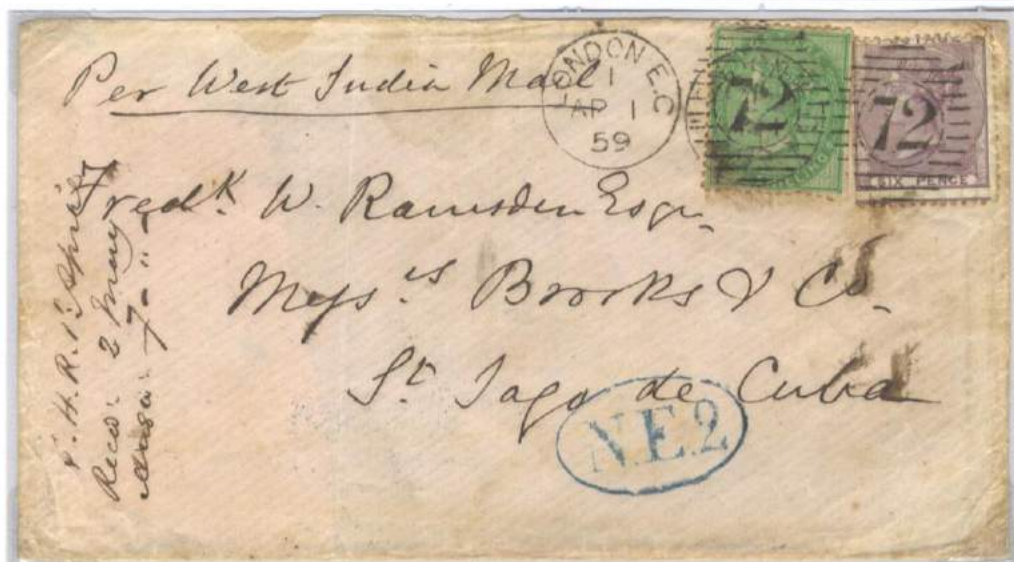 Per West India Mail
LONDON E.C
1
AP 1
59
72
72
SIX PENCE
Fredk. W. Ramsden Esqr.
Messrs Brooks & Co.
St Jago de Cuba
N.E.2
H. R. 1st April
Recd. 2 May
7 " "